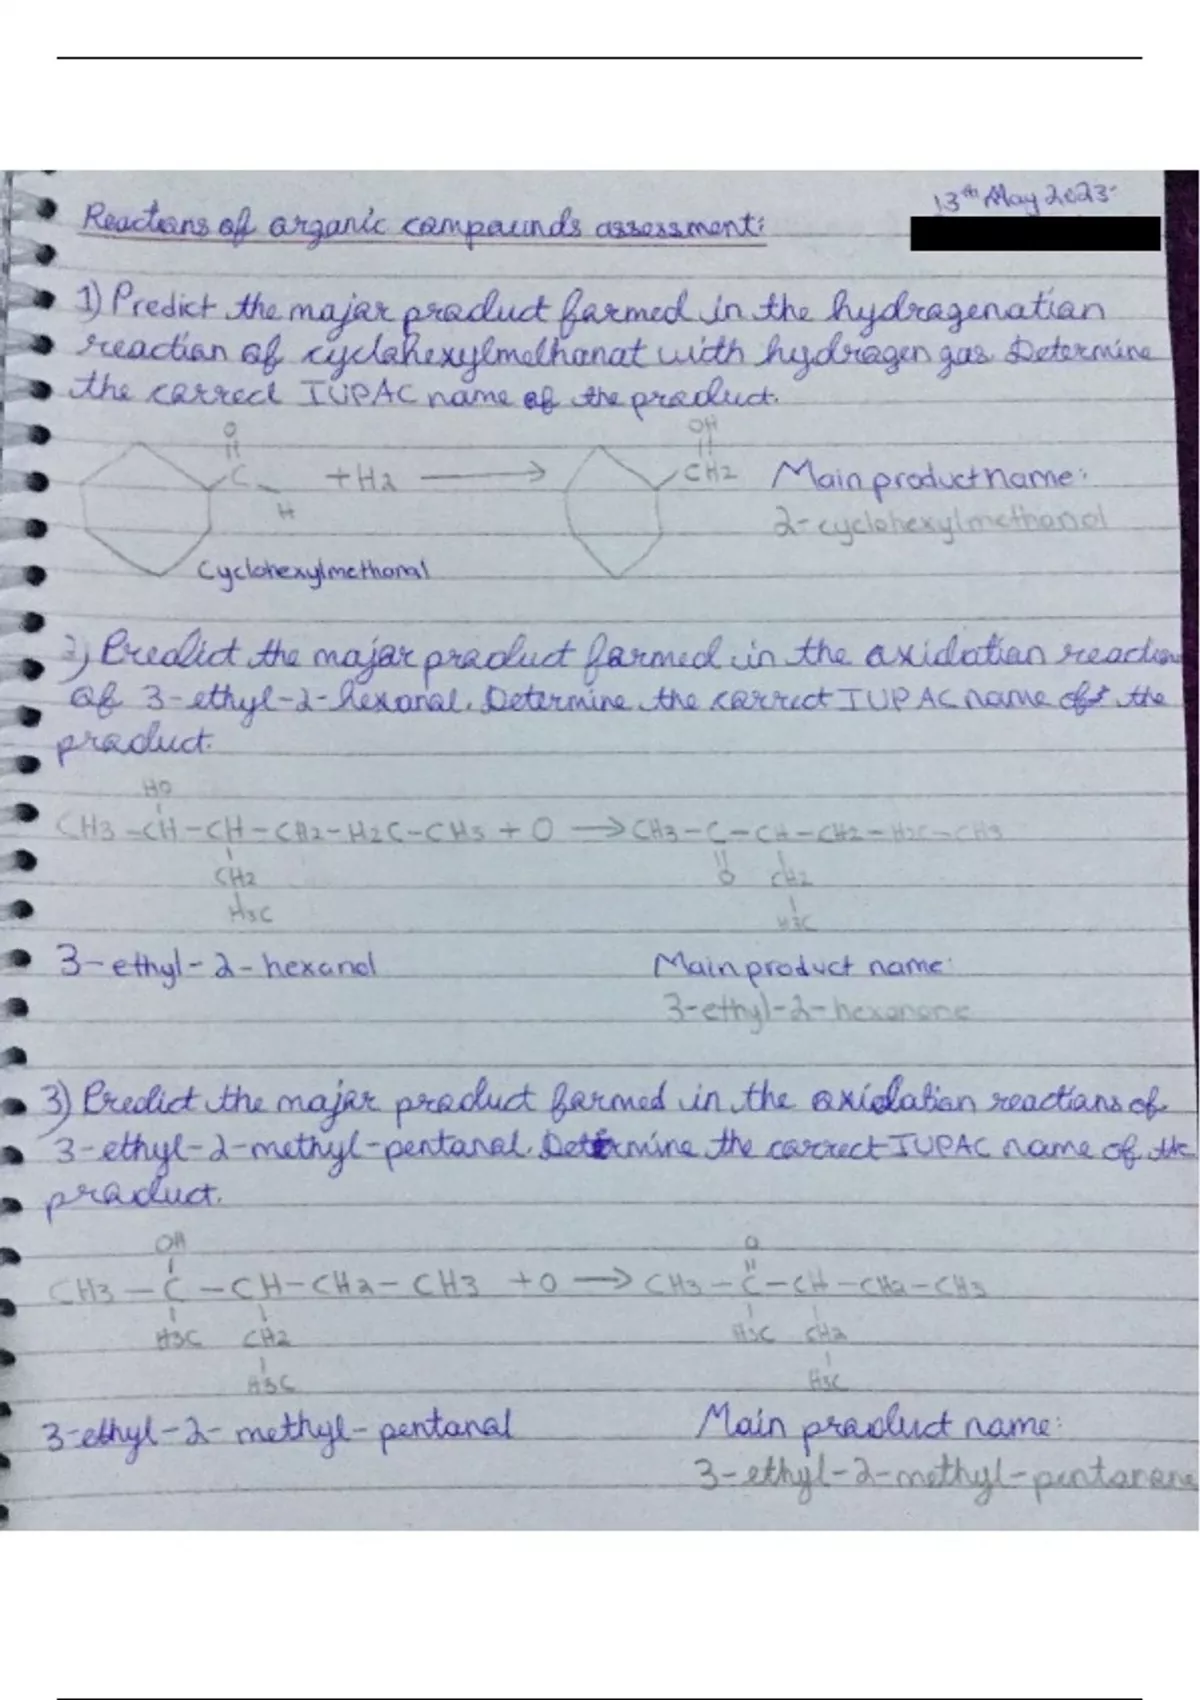 13th May 2023
Reactions of organic compounds assessment:
1) Predict the major product formed in the hydrogenation
reaction of cyclohexylmethanal with hydrogen gas. Determine
the correct IUPAC name of the product.
O OH
C +H2 → CH2 Main product name:
H 2-cyclohexylmethanol
Cyclohexylmethanal
2) Predict the major product formed in the oxidation reaction
of 3-ethyl-2-hexanal. Determine the correct IUPAC name of the
product.
HO
CH3-CH-CH-CH2-H2C-CH3 + O → CH3-C-CH-CH2-H2C-CH3
CH2 O CH2
H3C H3C
3-ethyl-2-hexanol Main product name:
3-ethyl-2-hexanone
3) Predict the major product formed in the oxidation reactions of
3-ethyl-2-methyl-pentanal. Determine the correct IUPAC name of the
product.
OH O
CH3-C-CH-CH2-CH3 +O → CH3-C-CH-CH2-CH3
H3C CH2 H3C CH2
H3C H3C
3-ethyl-2-methyl-pentanal Main product name:
3-ethyl-2-methyl-pentanone